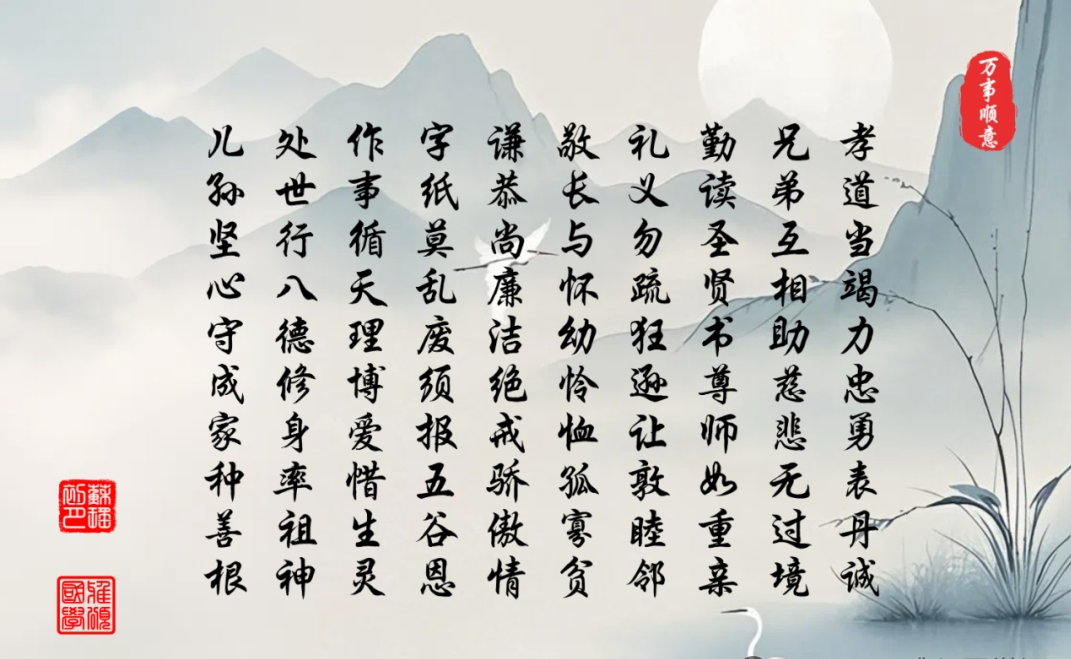 万事顺意
孝道当竭力忠勇表丹诚
兄弟互相助慈悲无过境
勤读圣贤书尊师如重亲
礼义勿疏狂逊让敦睦邻
敬长与怀幼怜恤孤寡贫
谦恭尚廉洁绝戒骄傲情
字纸莫乱废须报五谷恩
作事循天理博爱惜生灵
处世行八德修身率祖神
儿孙坚心守成家种善根
雅颂
國學